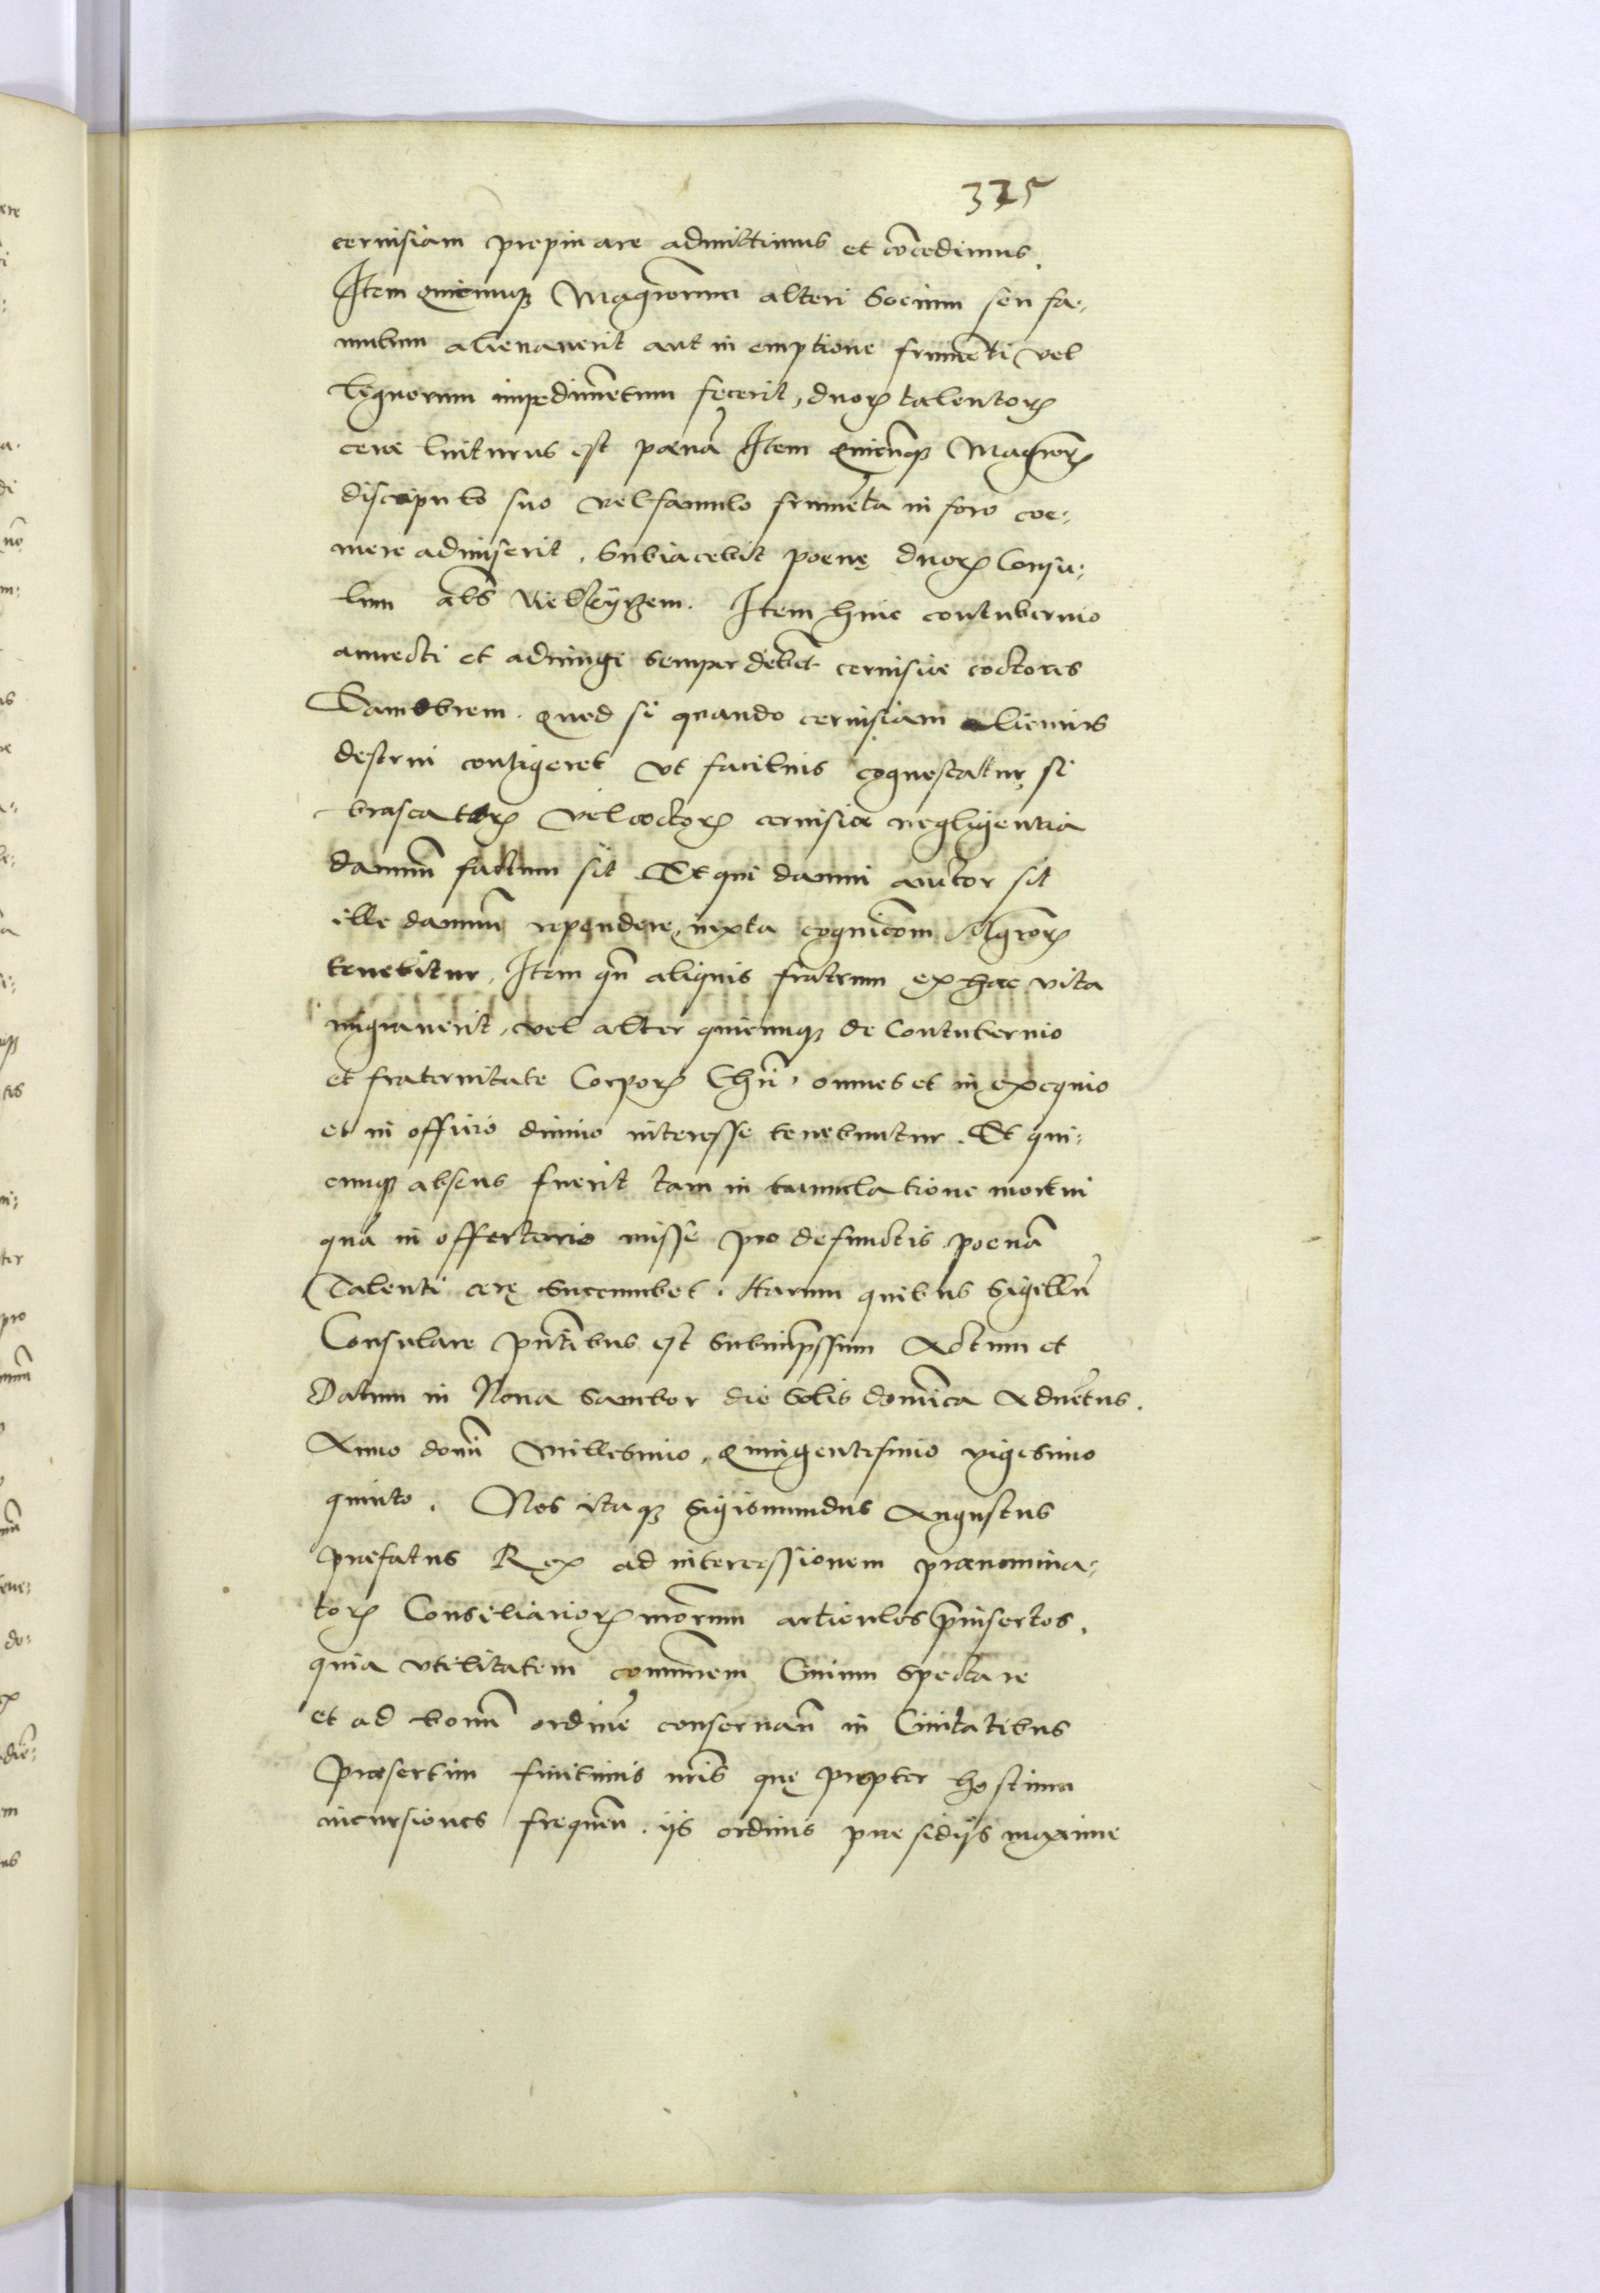 325
cervisiam propinare admittimus et cōcedimus.
Item quicunqꝫ Magistrorum alteri Socium seu fa:
mulum alienaverit aut in emptione frumēti vel
lignorum impedimētum fecerit, duorꝝ talentorꝝ
cerae luiturus est poenā Item quicūqꝫ Magrorꝝ
discipulo suo vel famulo frumēta in foro coe:
mere admiserit. Subiacebit poenę duorꝝ Consu:
lum als Item huic contubernio
annecti et adiungi semper debēt cervisiae coctores
Samborien. quod si quando cervisiam alicuius
destrui contigeret vt facilius cognoscatur, si
brascatorꝝ vel coctorꝝ cervisiae negligentia
damnū factum sit. Et qui damni auctor sit
ille damnū rependere, iuxta cognicōm Mgrorꝝ
tenebitur. Item qn̄ aliquis fratrum ex hac vita
migraverit, vel alter quicunqꝫ de Contubernio
et fraternitate Corporꝝ Chrī, omnes et in exequio
et in officio divino interesse tenebuntur. Et qui:
cunqꝫ absens fuerit tam in tumulatione mortui
quā in offertorio missę pro defunctis poenā
Talenti cerę succumbet. Harum quibus Sigillū
Consulare pn̄tibus est Subimpssum Actum et
Datum in Nova Sambor die Solis domīca Aduētus.
Anno domī Millesimo, quingentesimo vigesimo
quinto. Nos itaqꝫ Sigismundus Augustus
praefatus Rex ad intercessionem praenomina:
torꝝ Consiliariorꝝ nrorum articulos pinsertos,
quia vtilitatem comunem Civium spectare
et ad bonū ordinē conservan̄ in Civitatibus
praesertim finitimis nris quę propter hostium
incursiones frequēn. iis ordinis praesidijs maxime